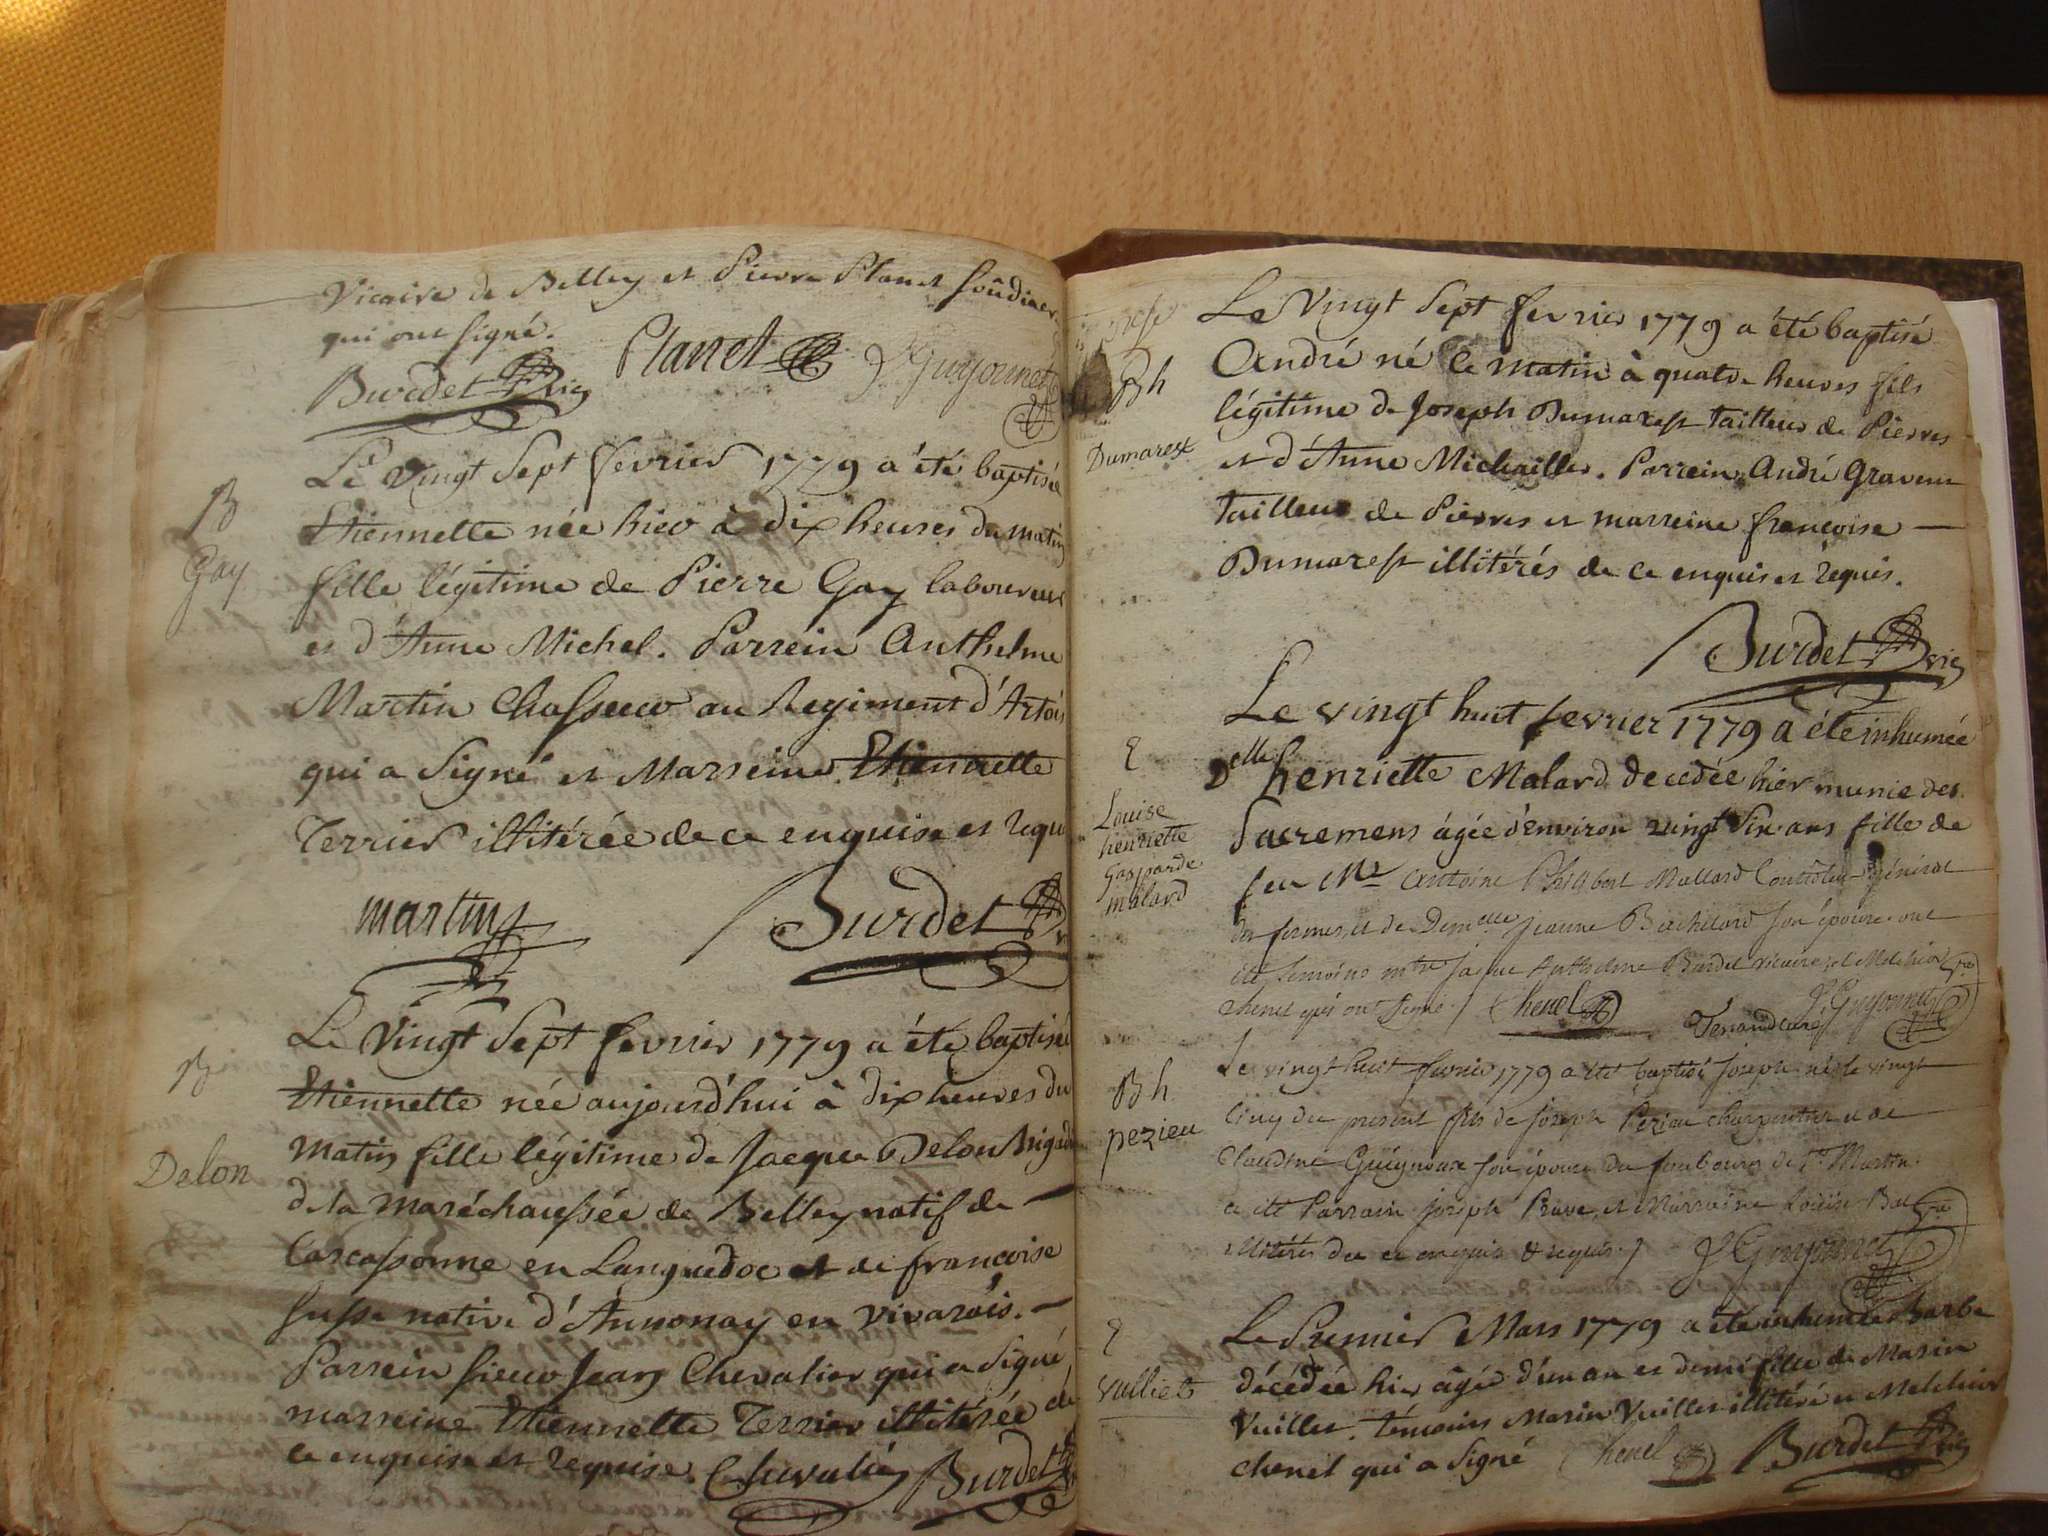 Vicaire de Belley et Pierre Planet
qui ont signé.
Burdet vic
Planet
Guyonnet
B
Gay
Le vingt sept fevrier 1779 a été baptisée
Etiennette née hier à dix heures du matin
fille légitime de Pierre Gay laboureur
et d'Anne Michel. Parrein Anthelme
Martin Chasseur au Regiment d'Artois
qui a signé et Marreine Etiennette
Terrier illitérée de ce enquise et requ
martin
Burdet
B
Delon
Le vingt sept fevrier 1779 a été baptisée
Etiennette née aujourd'hui à dix heures du
matin fille légitime de Jacque Delon
de la maréchaussée de Belley natif de
Carcassonne en Languedoc et de francoise
native d'Annonay en vivarais.
Parrein sieur Jean Chevalier qui a signé
marreine Etiennette Terrier illitérée de
ce enquise et requise. Chevalier
Burdet
Bh
Dumarest
Le vingt sept fevrier 1779 a été baptisé
André né ce matin à quatre heures fils
légitime de Joseph Dumarest tailleur de Pierres
et d'Anne Michaillet. Parrein André
tailleur de Pierres et marreine francoise
Dumarest illitérés de ce enquis et requis.
Burdet vic
Louise
henriette
Gasparde
malard
Le vingt huit fevrier 1779 a été inhumée
Delle henriette Malard decedée hier munie des
sacremens agée d'environ vingt six ans fille de
feu Mr Antoine Philibert Mallard Controleur Général
des fermes, et de Demelle Jeanne Bachelard son épouse. ont
été temoins mtre Jaque Anthelme Burdet vicaire, et Melchior
chenet qui ont signé. Chenel
Guyonnet
Bh
pezieu
Le vingt huit fevrier 1779 a été baptisé joseph né le vingt
cinq du present fils de joseph Pezieu charpentier et de
Claudine son épouse du faubourg de St Martin.
a été Parrain joseph et Marraine Louise
illitérés de ce enquis & requis.
Guyonnet
Vulliet
Le Premier Mars 1779 a été inhumée Barbe
décédée hier âgée d'un an et demi fille de Marin
Vuillet. témoins Marin Vuillet illitéré et Melchior
chenel qui a signé
Chenel
Burdet vic